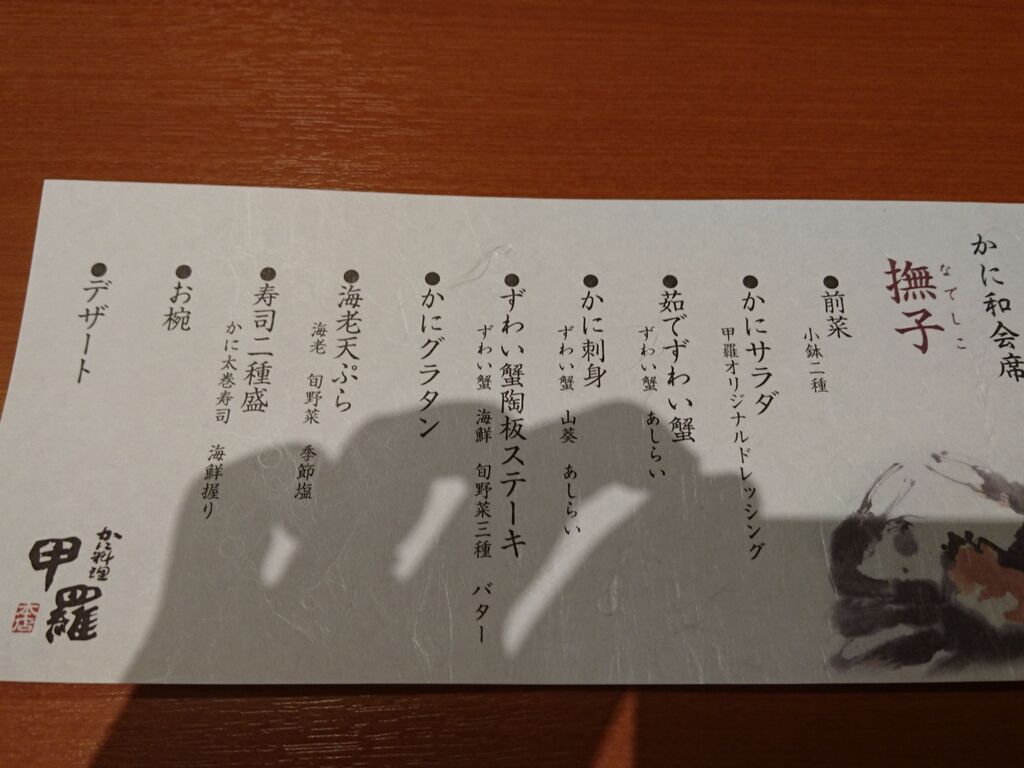 かに和会席
なでしこ
撫子
●前菜
小鉢二種
●かにサラダ
甲羅オリジナルドレッシング
●茹でずわい蟹
ずわい蟹 あしらい
●かに刺身
ずわい蟹 山葵 あしらい
●ずわい蟹陶板ステーキ
ずわい蟹 海鮮 旬野菜三種 バター
●かにグラタン
●海老天ぷら
海老 旬野菜 季節塩
●寿司二種盛
かに太巻寿司 海鮮握り
●お椀
●デザート
かに料理
甲羅
本店